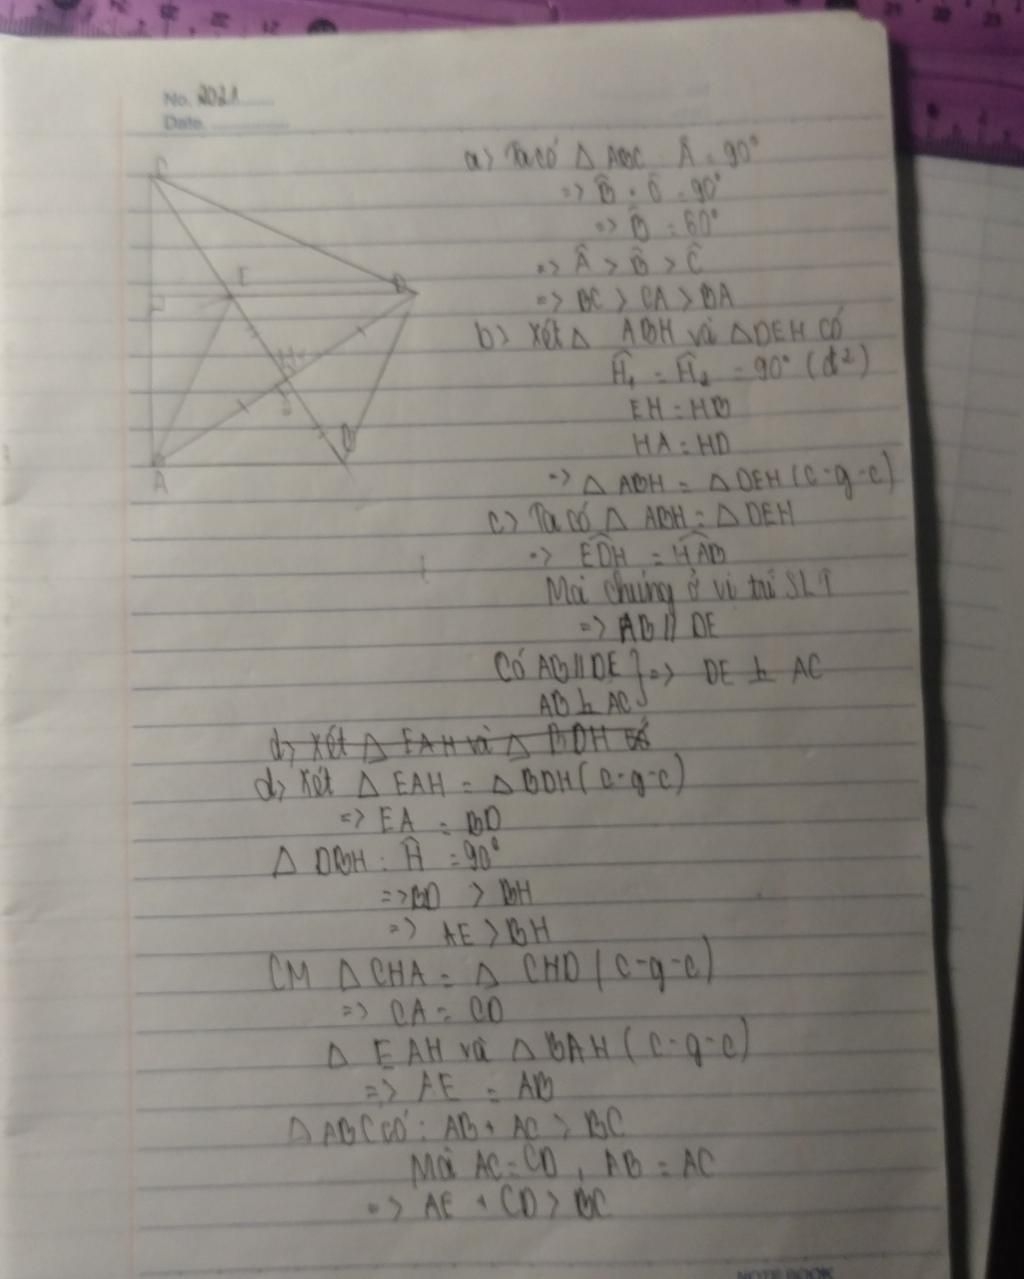 No. 2021
Date.
a) Ta có △ ABC Â = 90°
=> B̂ + Ĉ = 90°
=> B̂ = 60°
=> Â > B̂ > Ĉ
=> BC > CA > BA
b) Xét △ ABH và △DEH có
Ĥ₁ = Ĥ₂ = 90° (đ²)
EH = HB
HA = HD
=> △ ABH = △ DEH (c-g-c)
c) Ta có △ ABH = △ DEH
=> EDH = HAB
Mà chúng ở vị trí SLT
=> AB // DE
Có AB // DE } => DE ⊥ AC
AB ⊥ AC
d) Xét △ EAH và △ BDH có
d) Xét △ EAH = △ BDH (c-g-c)
=> EA = BD
△ DBH : Ĥ = 90°
=> BD > BH
=> AE > BH
CM △ CHA = △ CHD (c-g-c)
=> CA = CD
△ EAH và △ BAH (c-g-c)
=> AE = AB
△ ABC có : AB + AC > BC
Mà AC = CD , AB = AC
=> AE + CD > BC
C
E
D
H
A
B
NOTEBOOK